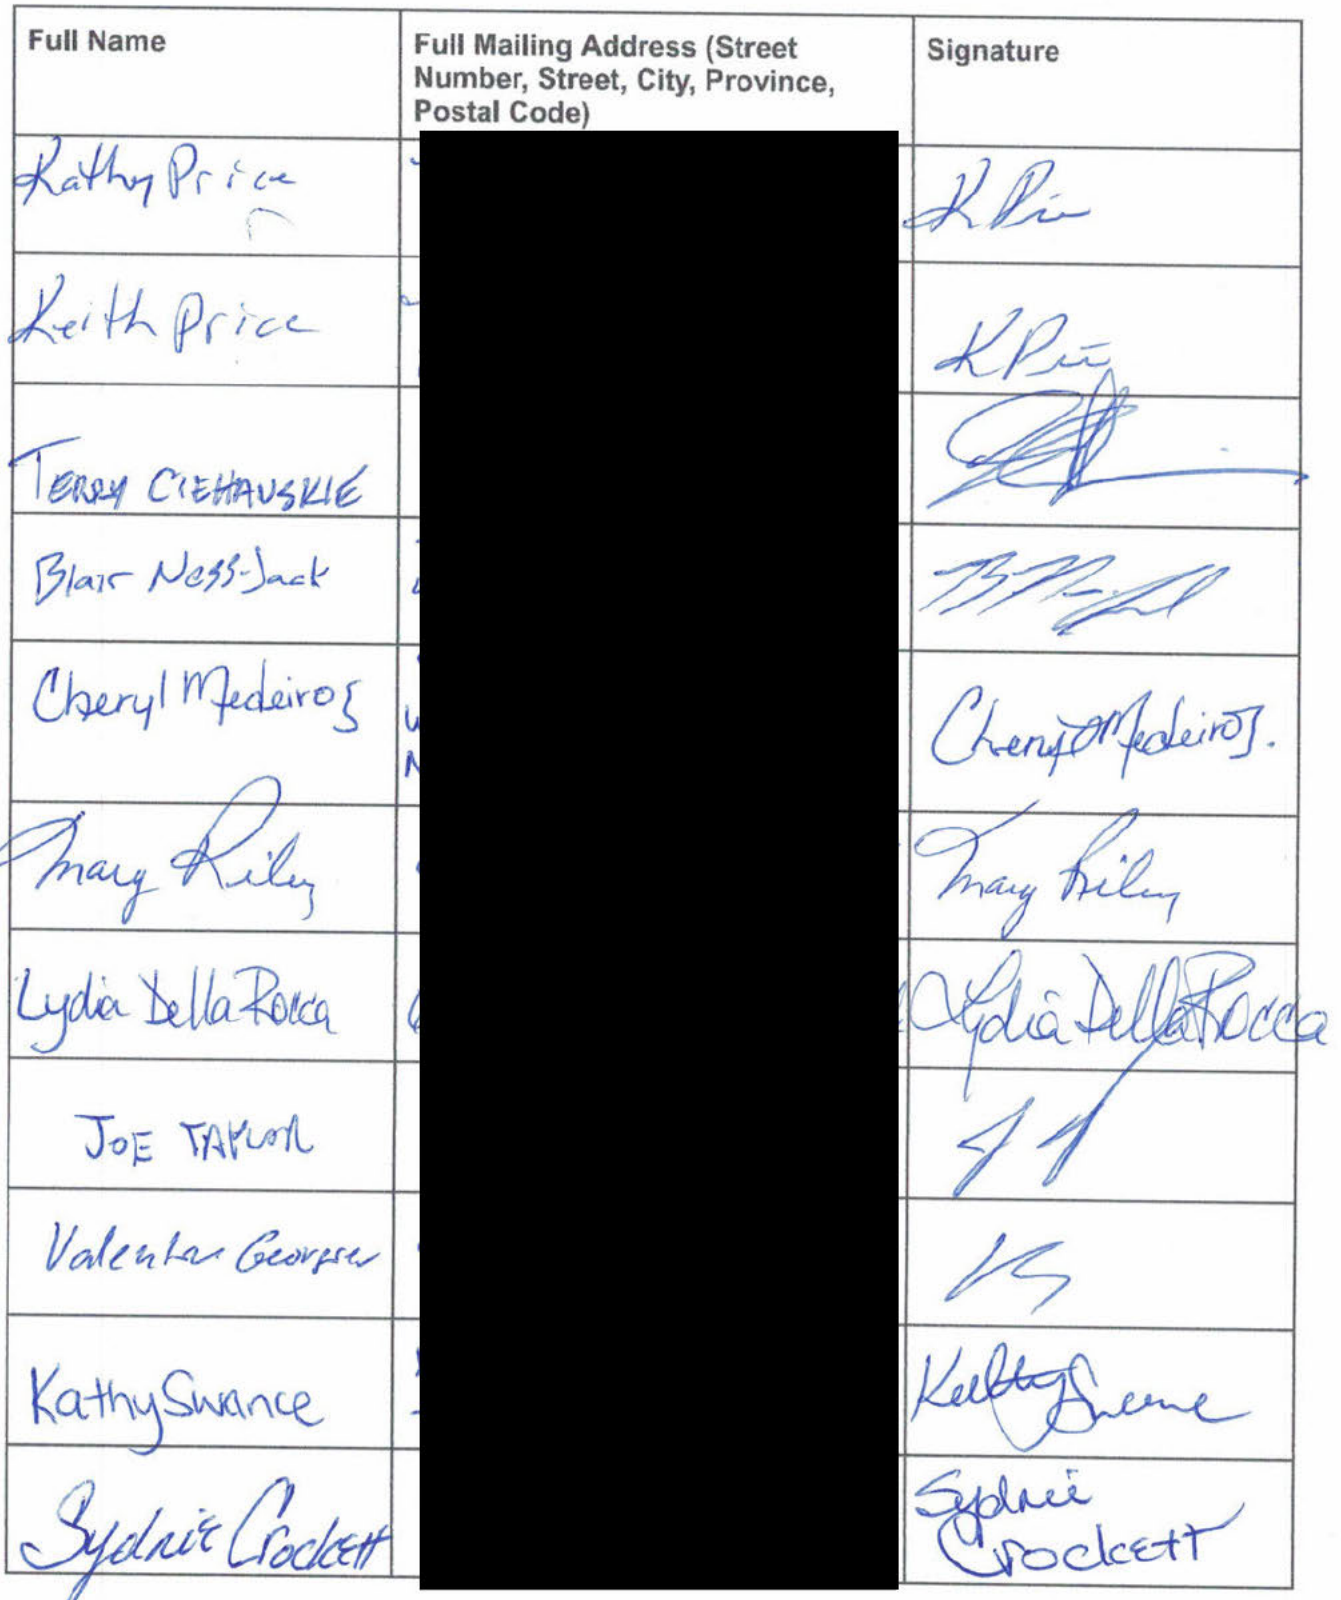 Full Name
Full Mailing Address (Street
Number, Street, City, Province,
Postal Code)
Signature
Kathy Price
K Pri
Keith Price
K Pri
TERRY CIEHAUSKIE
Blair Ness-Jack
Cheryl Medeiros
Cheryl Medeiros.
Mary Riley
Mary Riley
Lydia Della Rocca
Lydia Della Rocca
JOE TAYLOR
Kathy Swance
Kathy
Sydnie Crockett
Sydnie
Crockett